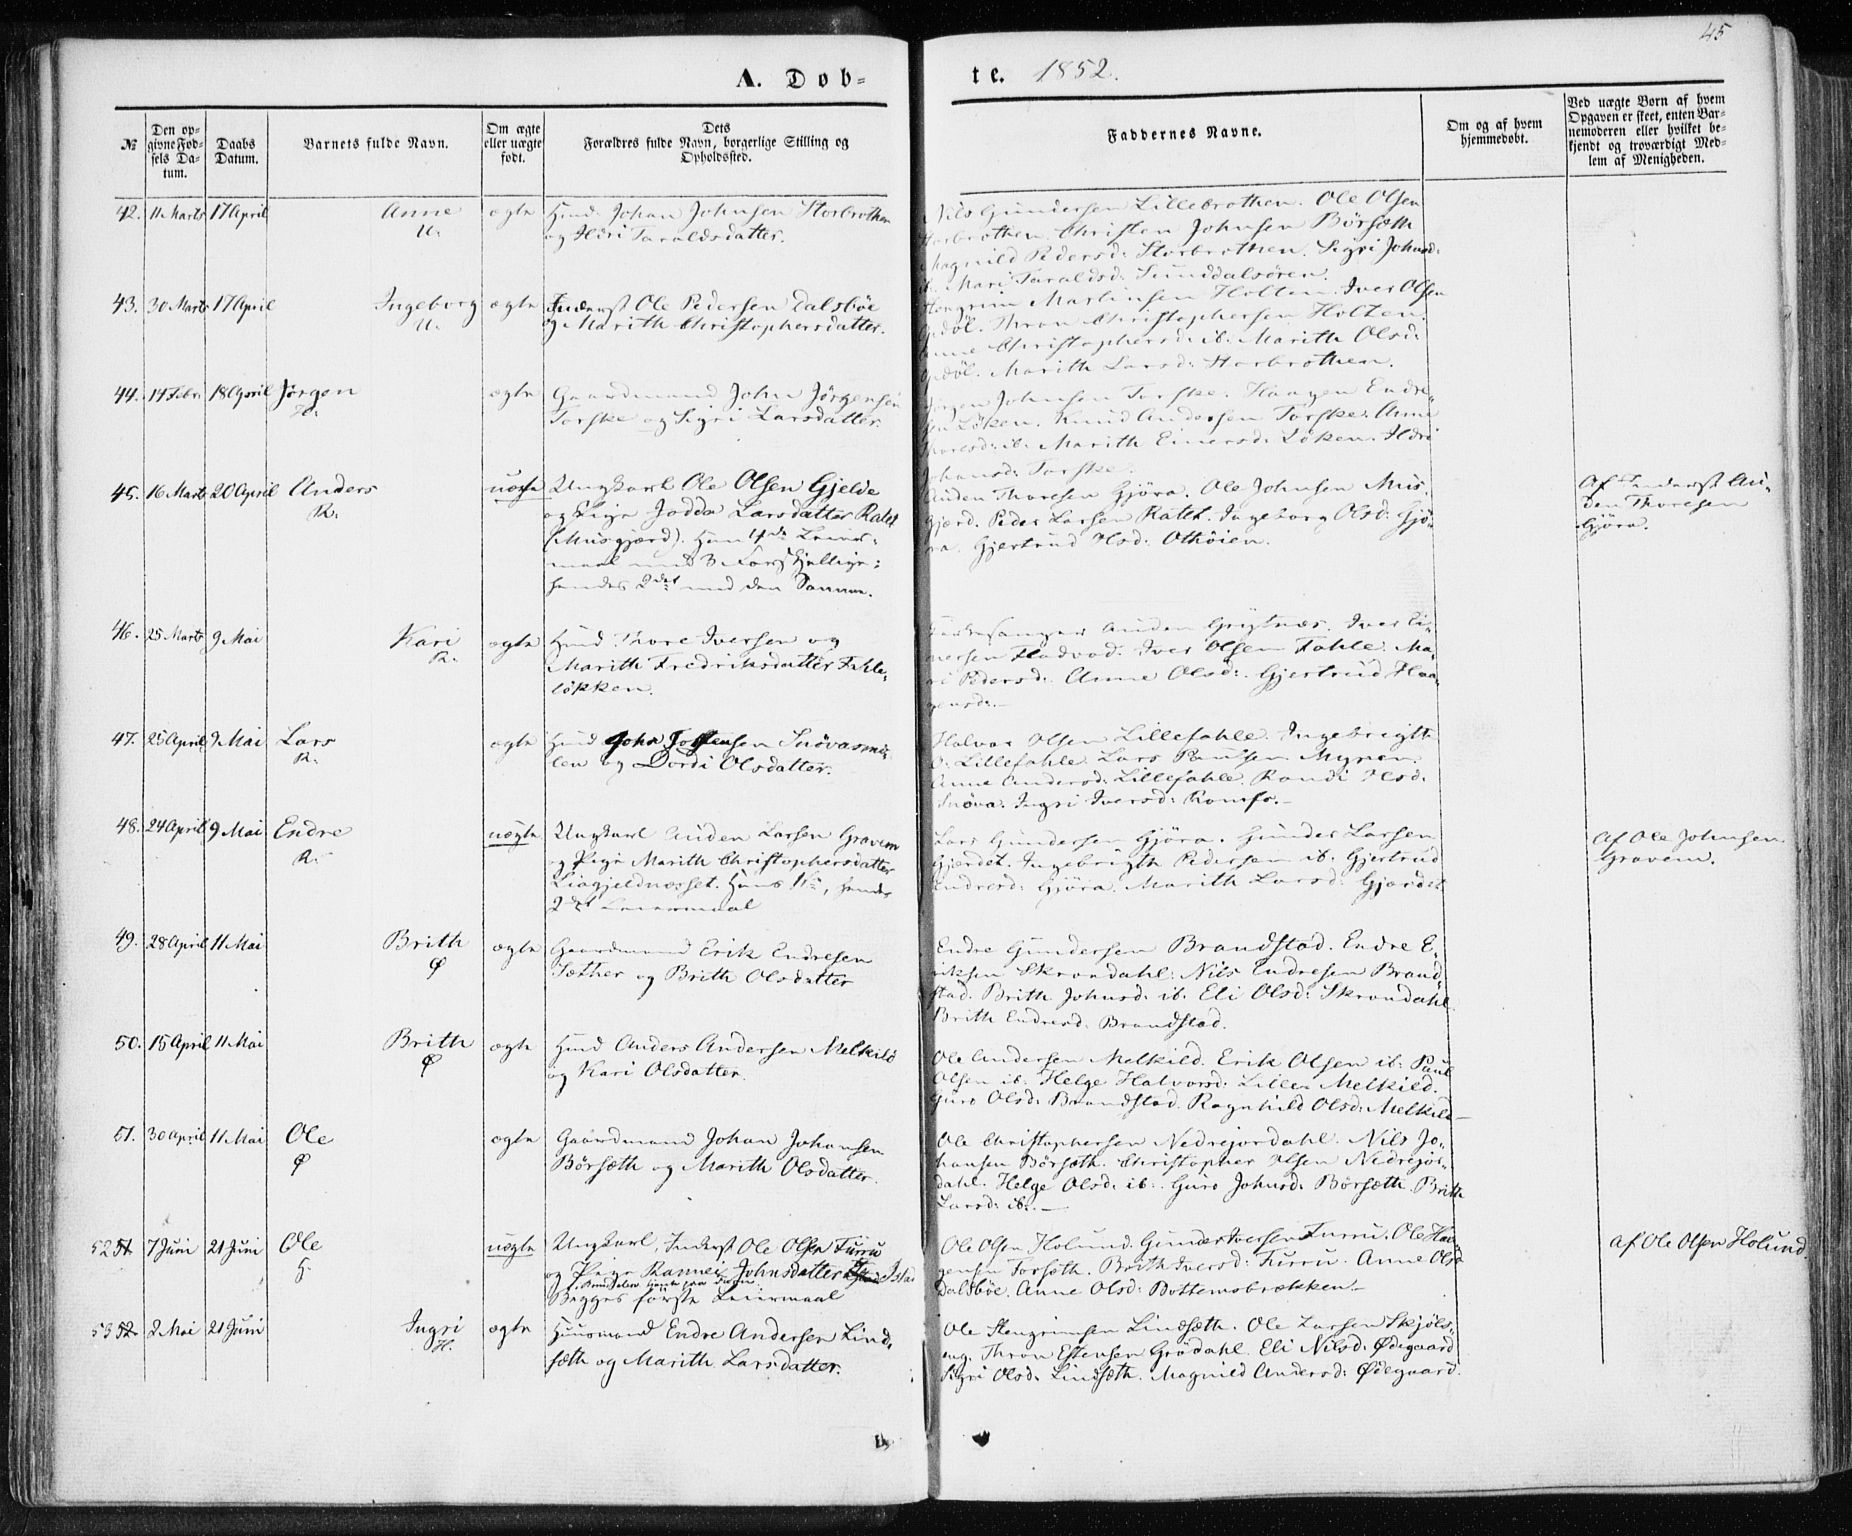 45
A. Døb-
te. 1852.
№
Den op-
givne Fød-
sels Da-
tum.
Daabs
Datum.
Barnets fulde Navn.
Om ægte
eller uægte
født.
Dets
Forældres fulde Navn, borgerlige Stilling og
Opholdssted.
Faddernes Navne.
Om og af hvem
hjemmedøbt.
Ved uægte Børn af hvem
Opgaven er skeet, enten Bar-
nemoderen eller hvilket be-
kjendt og troværdigt Med-
lem af Menigheden.
42. 11 Marts 17 April Anne ægte Huusd. Johan Johnsen Storbrothen
U. og Ildri Taraldsdatter.
Nils Gundersen Lillebrothen. Ole Olsen
Storbrothen. Christen Johnsen Börsæth
Magnild Pedersd: Storbrothen. Sigri Johnsd:
ib. Mari Taraldsd: Sunddalsören.
43. 30 Marts 17 April Ingeborg ægte Inderst Ole Pedersen Dalsböe
U. og Marith Christophersdatter.
Stengrim Martinsen Holten. Iver Olsen
Opdöl. Thron Christophersen Holten.
Anne Christophersd: ib. Marith Olsd:
Opdöl. Marith Larsd: Storbrothen.
44. 14 Febr. 18 April Jörgen ægte Gaardmand John Jörgensen
Torske og Sigri Larsdatter.
Jörgen Johnsen Torske. Haagen Endre-
sen Löken. Knud Andersen Torske. Anne
Thoresd: ib. Marith Einersd: Löken. Ildri
Johansd: Torske.
45. 16 Marts 20 April Anders uægte Ungkarl Ole Olsen Gjelde
R. og Pige Jodda Larsdatter Ratet
(Musgjærd). Hans 4de Leier-
maal med 3 Forskjellige;
hendes 2det med den Samme.
Auden Thoresen Gjöra. Ole Johnsen Mus-
gjerd. Peder Larsen Ratet. Ingeborg Olsd: Gjö-
ra. Gjertrud Olsd: Othöien.
Af Inderst Au-
den Thoresen
Gjöra.
46. 25 Marts 9 Mai Kari ægte Huusd Thore Iversen og
R. Marith Fredriksdatter Fahle-
lökken.
Kirkesanger Auden Grijtnæs. Iver Ei-
nersen Fladvad. Iver Olsen Fahle. Ma-
ri Pedersd: Anne Olsd: Gjertrud Haa-
gensd:
47. 25 April 9 Mai Lars ægte Huusd John Tostensen Snövasmæ-
R. len og Dordi Olsdatter.
Halvor Olsen Lillefahle. Ingebrigth
O. Lillefahle. Lars Paulsen Myren.
Anne Andersd: Lillefahle. Randi Olsd:
Snöva. Ingri Iversd: Romfo.
48. 24 April 9 Mai Endre uægte Ungkarl Auden Larsen Gravem
R. og Pige Marith Christophersdatter
Liagjeldnesset. Hans 1ste, hendes
2det Leiermaal
Lars Gundersen Gjöra. Gunder Larsen
Gjerdet. Ingebrigth Pedersen ib. Gjertrud
Endresd: Gjöra. Marith Larsd: Gjerdet
Af Ole Johnsen
Gravem.
49. 28 April 11 Mai Brith ægte Gaardmand Erik Endresen
Ø Sæther og Brith Olsdatter
Endre Gundersen Brandstad. Endre E-
riksen Skrondahl. Nils Endresen Brand-
stad. Brith Johnsd: ib. Eli Olsd: Skrondahl
Brith Endresd: Brandstad.
50. 15 April 11 Mai Brith ægte Huusd Anders Andersen Melkild
Ø og Kari Olsdatter.
Ole Andersen Melkild. Erik Olsen ib: Paul
Olsen ib: Helge Halvorsd: Lille Melkild
Guro Olsd: Brandstad. Ragnhild Olsd: Melkild
51. 30 April 11 Mai Ole ægte Gaardmand Johan Johansen
Ø Börsæth og Marith Olsdatter.
Ole Christophersen Nedrejordahl. Nils Jo-
hansen Börsæth. Christopher Olsen Nedrejör-
dahl. Helge Olsd: ib. Guro Johnsd: Börsæth. Brith
Larsd: ib.
52 51 7 Juni 21 Juni Ole uægte Ungkarl, Inderst Ole Olsen Furru
og Pige Rannei Johnsdatter
Begges förste Leiermaal
Ole Olsen Holund. Gunder Iversen Furru. Ole Haa-
gensen Forsæth. Brith Iversd: Furru. Anne Olsd
Dalsböe. Anne Olsd: Bottemsbrækken.
Af Ole Olsen Holund.
53 52 2 Mai 21 Juni Ingri ægte Huusmand Endre Andersen Lind-
H. sæth og Marith Larsdatter.
Ole Stengrimsen Lindsæth. Ole Larsen Skjöls-
eng. Thron Estensen Grödahl. Eli Nilsd: Ødegaard
Sigri Olsd: Lindsæth. Magnild Andersd: Ødegaard.